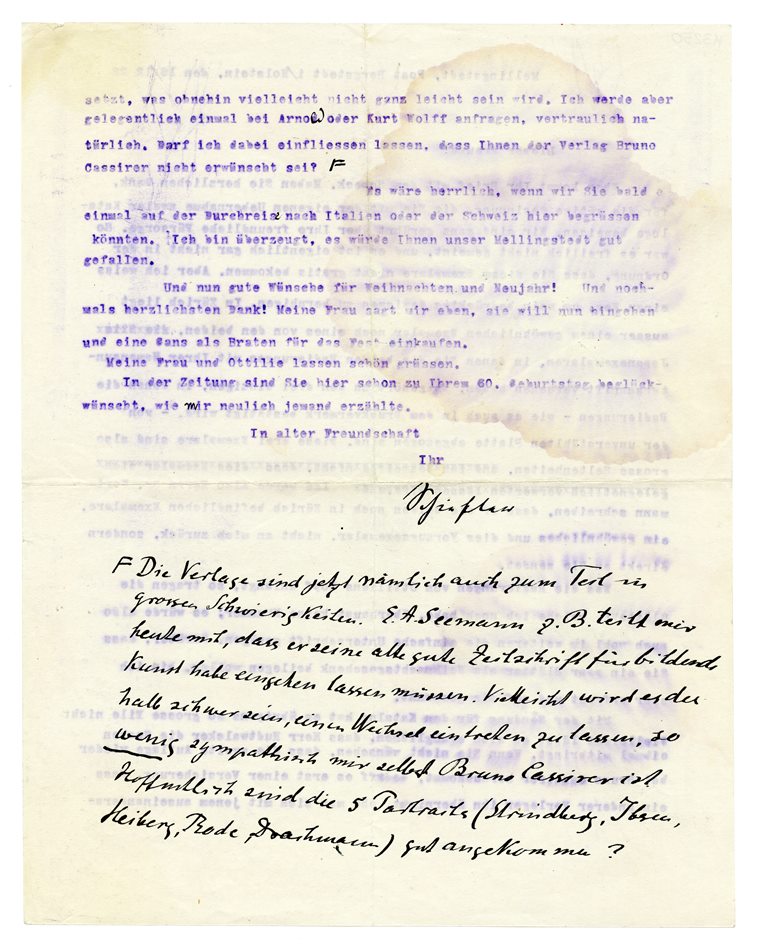 setzt, was ohnehin vielleicht nicht ganz leicht sein wird. Ich werde aber
gelegentlich einmal bei Arnold oder Kurt Wolff anfragen, vertraulich na-
türlich. Darf ich dabei einfliessen lassen, dass Ihnen der Verlag Bruno
Cassirer nicht erwünscht sei? F
Es wäre herrlich, wenn wir Sie bald
einmal auf der Durchreise nach Italien oder der Schweiz hier begrüssen
könnten. Ich bin überzeugt, es würde Ihnen unser Mellingstedt gut
gefallen.
Und nun gute Wünsche für Weihnachten und Neujahr! Und noch-
mals herzlichsten Dank! Meine Frau sagt mir eben, sie will nun hingehen
und eine Gans als Braten für das Fest einkaufen.
Meine Frau und Ottilie lassen schön grüssen.
In der Zeitung sind Sie hier schon zu Ihrem 60. Geburtstag beglück-
wünscht, wie mir neulich jemand erzählte.
In alter Freundschaft
Ihr
Schiefler
F Die Verlage sind jetzt nämlich auch zum Teil in
grossen Schwierigkeiten. E.A. Seemann z.B. teilt mir
heute mit, dass er seine alte gute Zeitschrift für bildende
Kunst habe eingehen lassen müssen. Vielleicht wird es des
halb schwer sein, einen Wechsel eintreten zu lassen, so
wenig sympathisch mir selbst Bruno Cassirer ist
Hoffentlich sind die 5 Portraits (Strindberg, Ibsen,
Heiberg, Rode, Drachmann) gut angekommen?